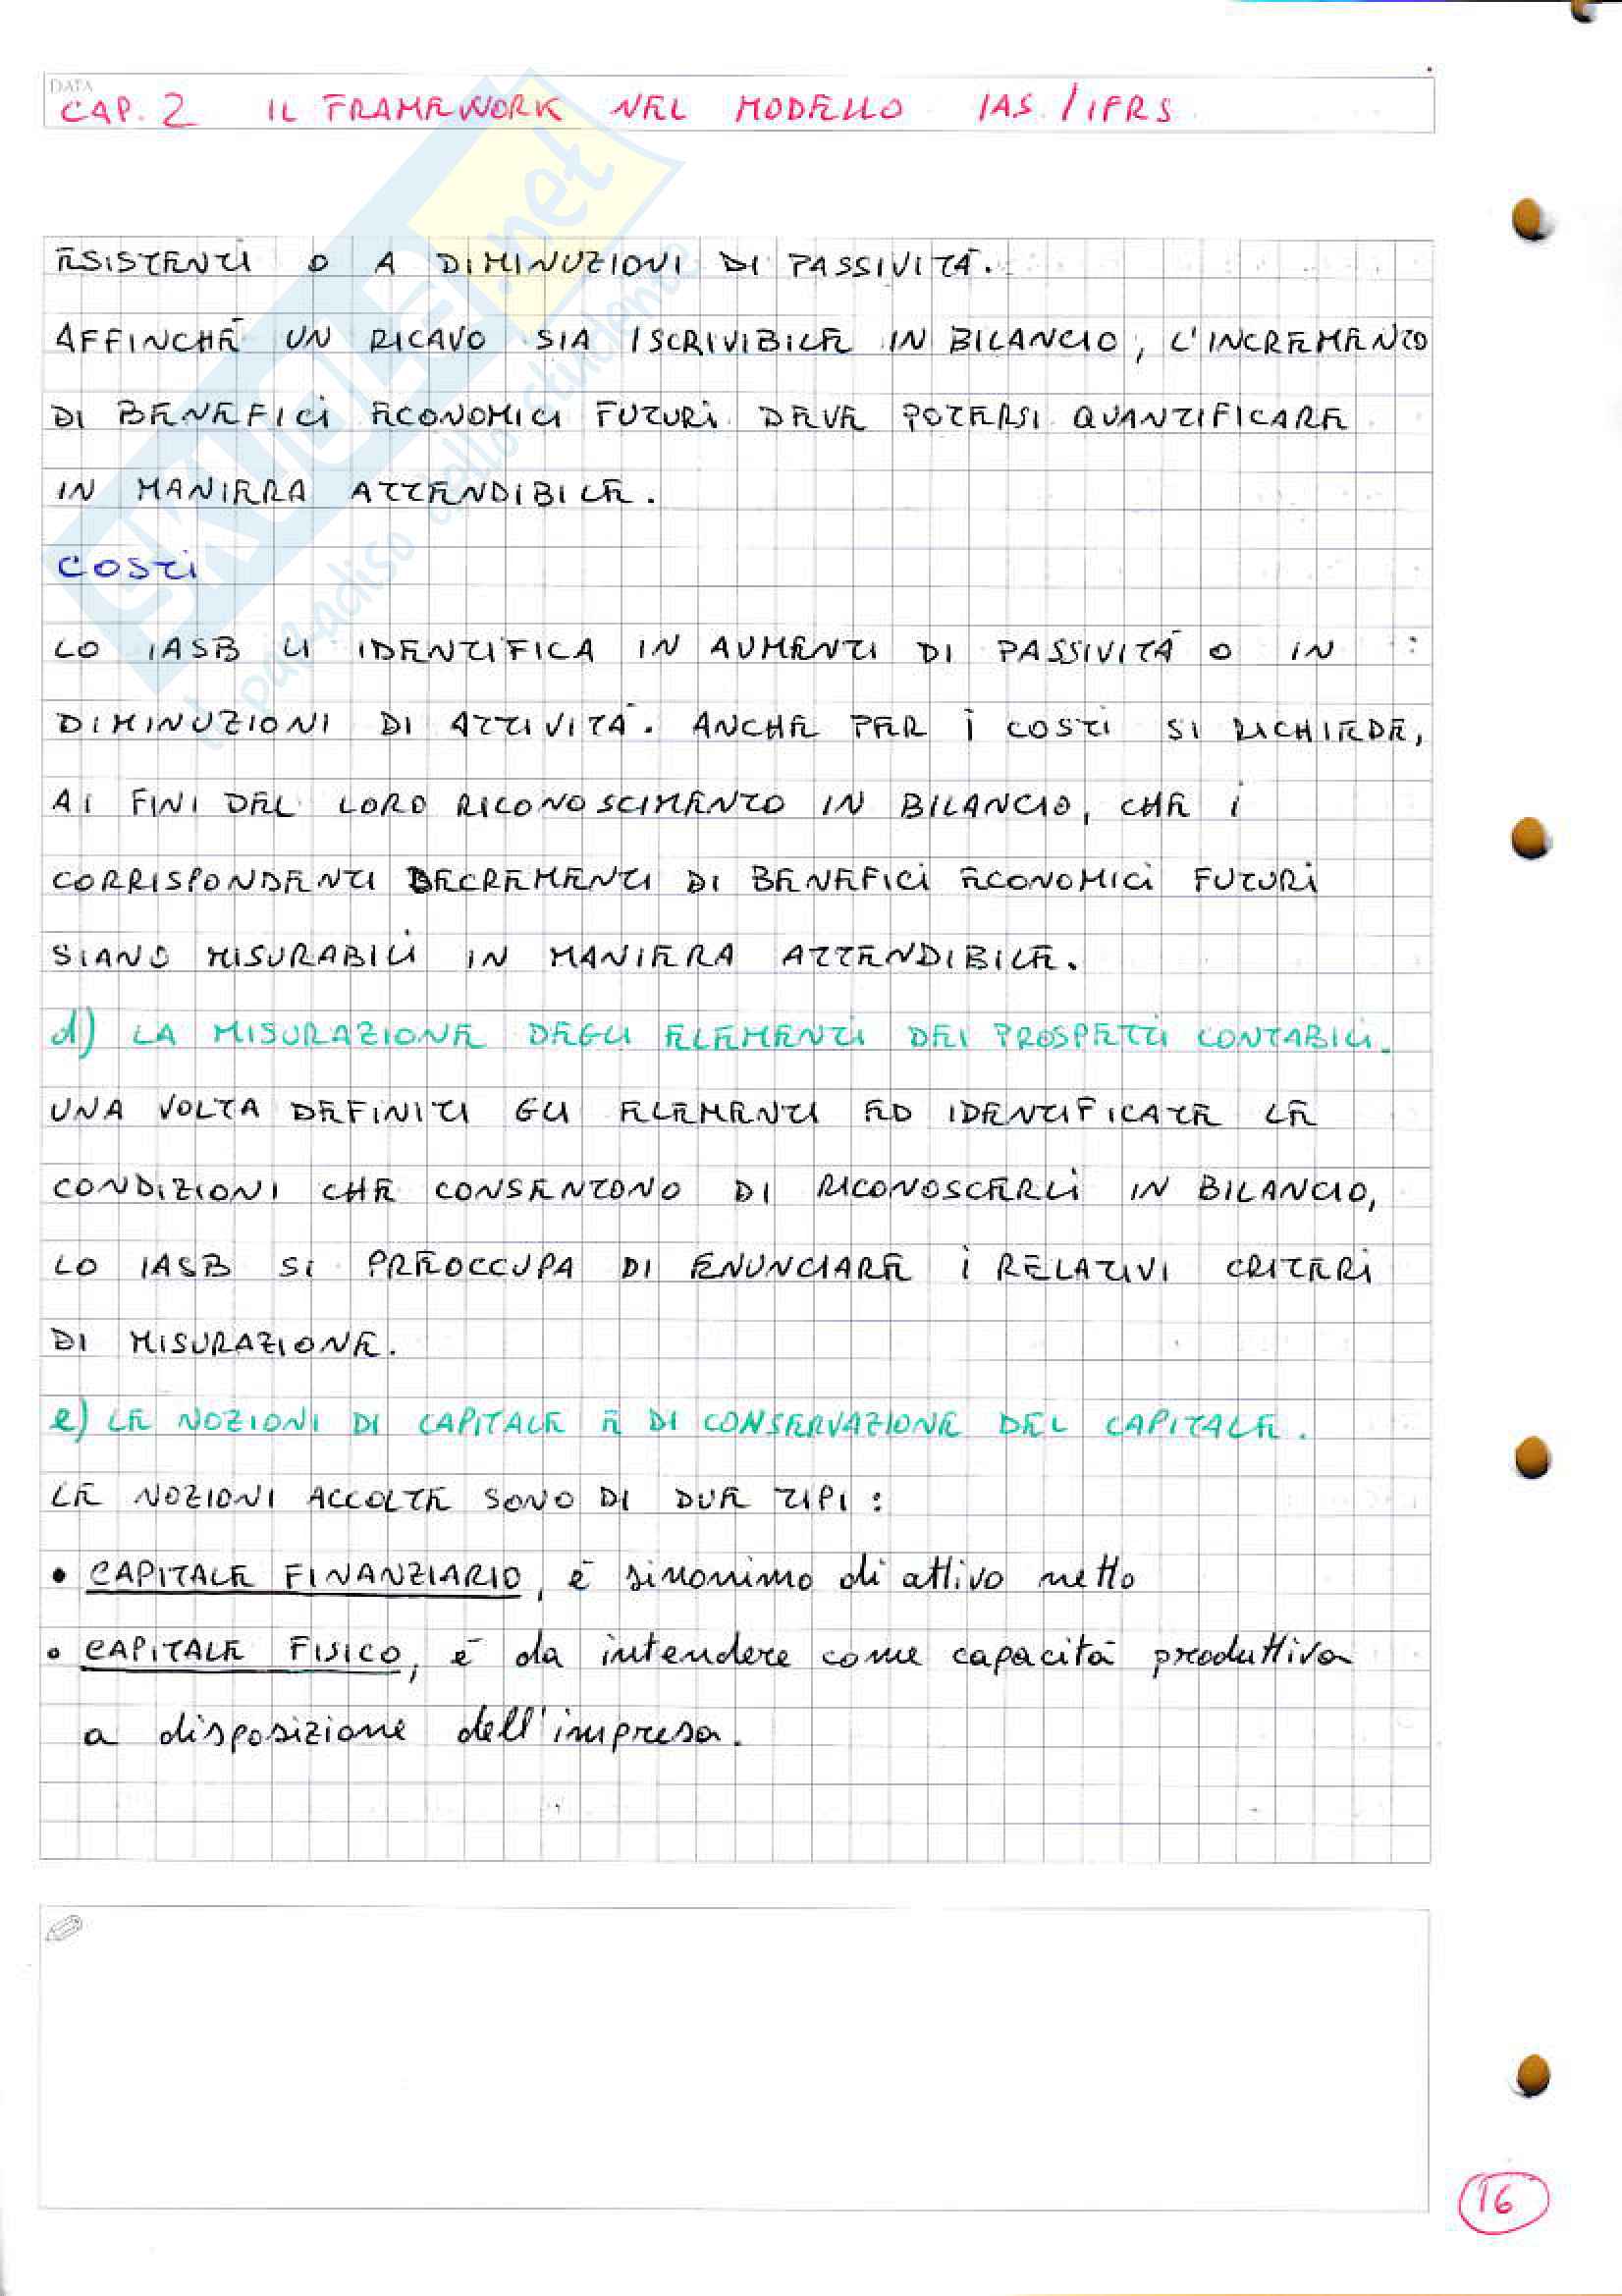 DATA
CAP. 2 IL FRAMEWORK NEL MODELLO IAS/IFRS
ESISTENTI O A DIMINUZIONI DI PASSIVITÀ.
AFFINCHÈ UN RICAVO SIA ISCRIVIBILE IN BILANCIO, L'INCREMENTO
DI BENEFICI ECONOMICI FUTURI DEVE POTERSI QUANTIFICARE
IN MANIERA ATTENDIBILE.
COSTI
LO IASB LI IDENTIFICA IN AUMENTI DI PASSIVITÀ O IN
DIMINUZIONI DI ATTIVITÀ. ANCHE PER I COSTI SI RICHIEDE,
AI FINI DEL LORO RICONOSCIMENTO IN BILANCIO, CHE I
CORRISPONDENTI DECREMENTI DI BENEFICI ECONOMICI FUTURI
SIANO MISURABILI IN MANIERA ATTENDIBILE.
d) LA MISURAZIONE DEGLI ELEMENTI DEI PROSPETTI CONTABILI.
UNA VOLTA DEFINITI GLI ELEMENTI ED IDENTIFICATE LE
CONDIZIONI CHE CONSENTONO DI RICONOSCERLI IN BILANCIO,
LO IASB SI PREOCCUPA DI ENUNCIARE I RELATIVI CRITERI
DI MISURAZIONE.
e) LE NOZIONI DI CAPITALE E DI CONSERVAZIONE DEL CAPITALE.
LE NOZIONI ACCOLTE SONO DI DUE TIPI:
• CAPITALE FINANZIARIO, è sinonimo di attivo netto
• CAPITALE FISICO, è da intendere come capacità produttiva
a disposizione dell'impresa.
16
SKUOLA.net
il paradiso dello studente